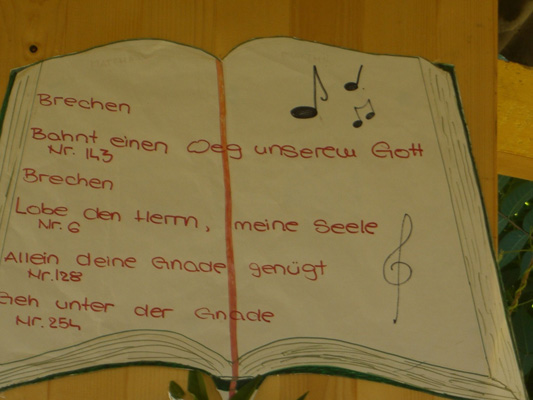 Brechen
Bahnt einen Weg unserem Gott
Nr. 143
Brechen
Lobe den Herrn, meine Seele
Nr. 6
Allein deine Gnade genügt
Nr. 128
Geh unter der Gnade
Nr. 254